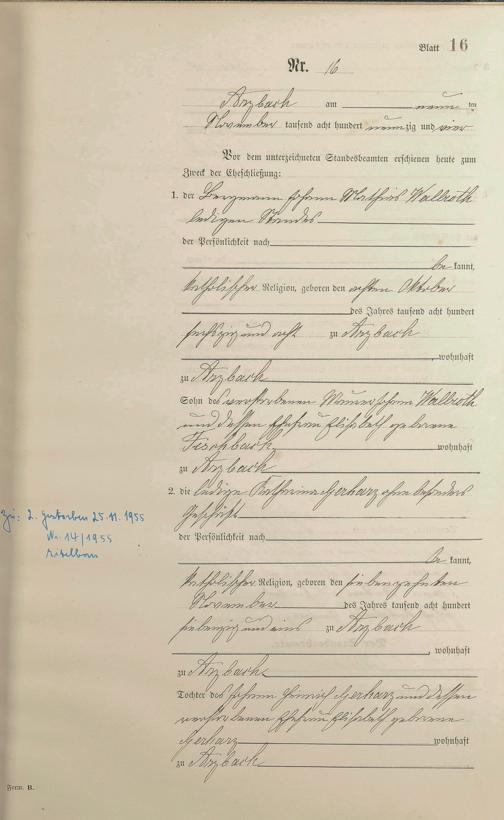 Blatt 16
Nr. 16
Arzbach am neun ten
November tausend acht hundert neunzig und vier
Vor dem unterzeichneten Standesbeamten erschienen heute zum
Zweck der Eheschließung:
1. der Bergmann Johann Mathias Wallroth
ledigen Standes
der Persönlichkeit nach
be kannt,
katholischer Religion, geboren den ersten Oktober
des Jahres tausend acht hundert
sechszig und acht zu Arzbach
, wohnhaft
zu Arzbach
Sohn des verstorbenen Maurer Johann Wallroth
und dessen Ehefrau Elisabeth geborene
Fischbach wohnhaft
zu Arzbach
2. die ledige Katharina Gerharz ohne besonders
Geschäft
der Persönlichkeit nach
be kannt,
katholischer Religion, geboren den siebenzehnten
November des Jahres tausend acht hundert
siebenzig und eins zu Arzbach
, wohnhaft
zu Arzbach
Tochter des Johann Heinrich Gerharz und dessen
verstorbenen Ehefrau Elisabeth geborene
Gerharz wohnhaft
zu Arzbach
Zu: 2. gestorben 25.11.1955
Nr. 14/1955
Form. B.